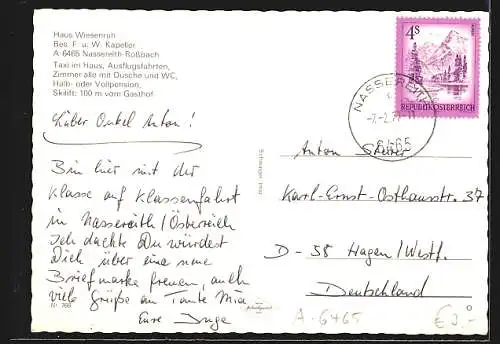 Haus Wiesenruh
Bes. F. u. W. Kapeller
A 6465 Nassereith-Roßbach
Taxi im Haus, Ausflugsfahrten,
Zimmer alle mit Dusche und WC,
Halb- oder Vollpension,
Skilift: 100 m vom Gasthof
4S
REPUBLIK ÖSTERREICH
NASSEREITH
6465
Lieber Onkel Anton!
Bin hier mit der
Klasse auf Klassenfahrt
in Nassereith/Österreich
Ich dachte Du würdest
Dich über eine neue
Briefmarke freuen, auch
viele Grüße an Tante Mia
Eure Inge
Nr. 766
Anton
Karl-Ernst-Osthausstr. 37
D-58 Hagen/Westf.
Deutschland
A-6465
€ 2.-